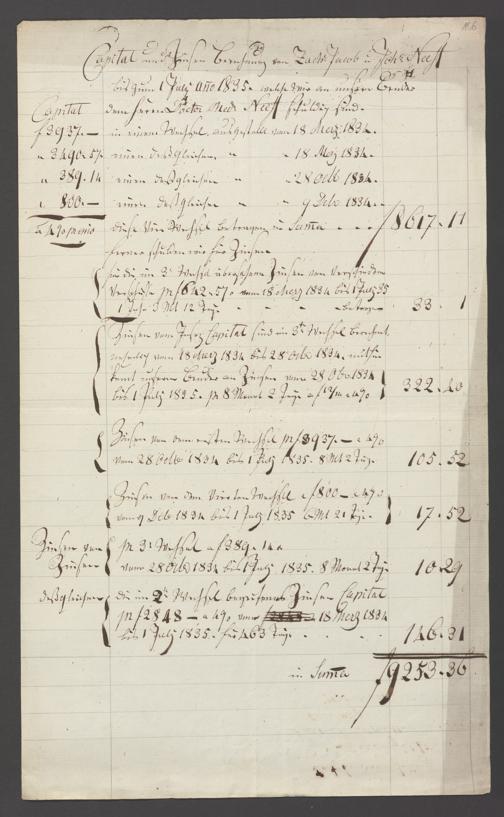 Capital und Zinsen Berechnung von Jacob u Joh: Neeff
bis zum 1 July Ano 1835. welche wir an unsern Bruder
Capital dem Herrn Doctor Med: Neeff schuldig sind.
f3937.— in einem Wechsel, ausgestellt vom 18 Merz 1834.
" 2490.57. einen desgleichen " " 18 May 1834.
" 389.14 einen desgleichen " " 28 Octb 1834.
" 800.— einen desgleichen " 9 Decb 1834.
a 4 % diese vier Wechsel betragen in Summa . . . f 8617.11
ferner schulden wir für Zinsen
für die im 2t Wechsel Zinsen von
Vorschüsse pr f 642.57. vom 18 Merz 1834 bis 1 July 35
1 Jahr 3 Mt 12 Tage . . . betragen 33. 1
Zinsen vom Capital sind im 3t Wechsel berechnet,
nehmlich vom 18 Merz 1834 bis 28 Octb 1834. mithin
kommt unserm Bruder an Zinsen vom 28 Octb 1834
bis 1 July 1835. pr 8 Monat 2 Tage a 4% 322.40
Zinsen von dem ersten Wechsel pr f 3937.— a 4%
vom 28 Octb 1834 bis 1 July 1835. 8 Mt 2 Tage. 105.52
Zinsen von dem vierten Wechsel a f 800— a 4%
vom 9 Decb 1834 bis 1 July 1835 6 Mt 21 Tge. 17.52
Zinsen von pr 3t Wechsel a f 389.14x
Zinsen vom 28 Octb 1834 bis 1 July 1835. 8 Monat 2 Tge 10.29
desgleichen die im 2t Wechsel begriffenen Zinsen Capital
pr f 2848— a 4%, vom 18 Merz 1834
bis 1 July 1835. für 463 Tage . . . 146.31
in Summa f 9253.36